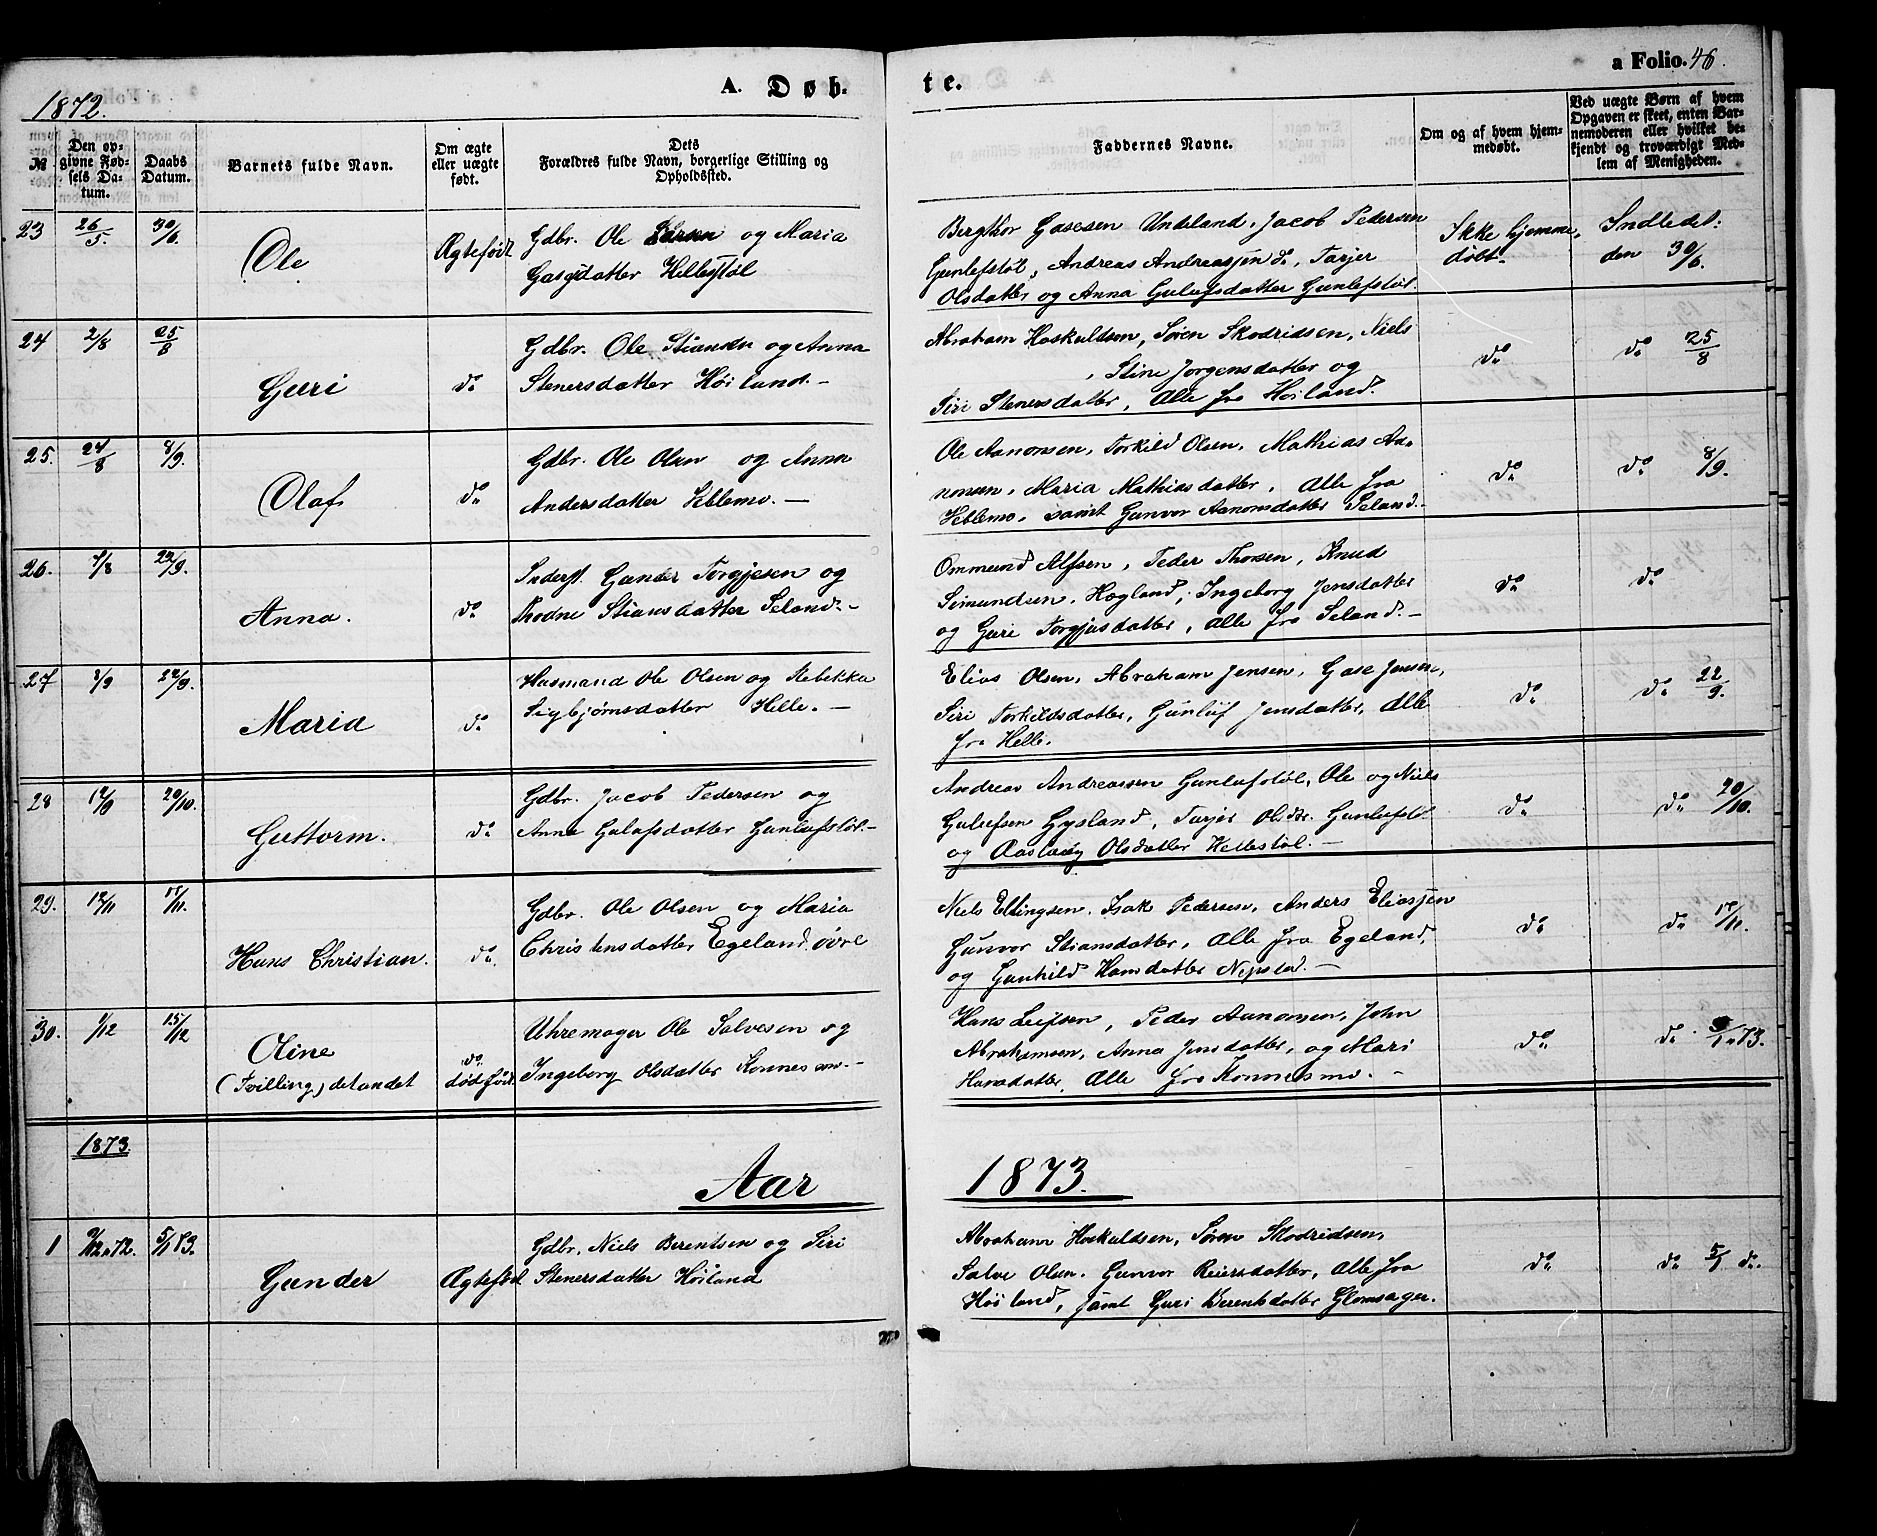 1872.
A. Døb-
te.
a Folio. 46.
№
Den op-
givne Fød-
sels Da-
tum.
Daabs
Datum.
Barnets fulde Navn.
Om ægte
eller uægte
født.
Dets
Forældres fulde Navn, borgerlige Stilling og
Opholdssted.
Faddernes Navne.
Om og af hvem hjem-
medøbt.
Ved uægte Børn af hvem
Opgaven er skeet, enten Bar-
nemoderen eller hvilket be-
kjendt og troværdigt Med-
lem af Menigheden.
23 26/5. 30/6. Ole Ægtefødt
Gdbr. Ole Larsen og Maria
Gasesdatter Hellestöl
Bergthor Gasesen Undeland, Jacob Pedersen
Gunlefstöl, Andreas Andreassen do, Tarjer
Olsdatter og Anna Gulufsdatter Gunlefstöl.
Ikke hjemme-
døbt.
Indledet:
den 30/6.
24 2/8 25/8 Guri do
Gdbr. Ole Stiansen og Anna
Stenersdatter Höiland.-
Abraham Hoskuldsen, Søren Skodridsen, Niels
, Stine Jorgensdatter og
Siri Stenersdatter, Alle fra Höiland.
do
do 25/8
25. 24/8 8/9. Olaf do
Gdbr. Ole Olsen og Anna
Andersdatter Heblemo.-
Ole Aanonsen, Torkild Olsen, Mathias Aa-
nonsen, Maria Mathiasdatter, Alle fra
Heblemo, samt Gunvor Aanonsdatter Seland.-
do
do 8/9.
26. 7/8 22/9. Anna. do
Inderst. Gunder Torgjesen og
Thodne Stiansdatter Seland.-
Ommund Alfsen, Peder Thorsen, Knud
Simundsen, Hægland, Ingeborg Jensdatter
og Guri Torgjusdatter, Alle fra Seland.-
do
do
27 8/9 22/9. Maria do
Husmand Ole Olsen og Rebekka
Sigbjørnsdatter Helle.-
Elias Olsen, Abraham Jensen, Gase Jensen,
Siri Torkildsdatter, Gunlüf Jensdatter, Alle
fra Helle.
do
do 22/9.
28 12/9 20/10. Guttorm. do
Gdbr. Jacob Pedersen og
Anna Gulufsdatter Gunlufstöl.-
Andreas Andreassen Gunlufstöl, Ole og Niels
Gulufsen Gysland, Tarjer Olsdtr. Gunlufstl.
og Aaslaug Olsdatter Hellestöl.-
do
do 20/10.
29. 12/11 17/11. Hans Christian. do
Gdbr. Ole Olsen og Maria
Christensdatter Egeland øvre
Niels Ellingsen, Isak Pedersen, Anders Eliassen
Gunvor Stiansdatter, Alle fra Egeland,
og Gunhild Hansdatter Nepstad.-
do
do 17/11.
30. 1/12 15/12 Oline
(Tvilling) det andet
do.
dødfødt.
Uhremager Ole Salvesen og
Ingeborg Olsdatter Konnesmo.-
Hans Leifsen, Peder Aanonsen, John
Abrahamsen, Anna Jensdatter, og Mari
Hansdatter, Alle fra Konnesmo.-
do
do 5/1 73.
1873.
Aar
1873.
1 9/12 72. 5/1 73. Gunder Ægtefød
Gdbr. Niels Berentsen og Siri
Stenersdatter Höiland
Abraham Hoskuldsen, Søren Skodridsen,
Salve Olsen, Gunvor Reiersdatter, Alle fra
Höiland, samt Guri Berentsdatter Glomsager.
do
do 5/1 do.